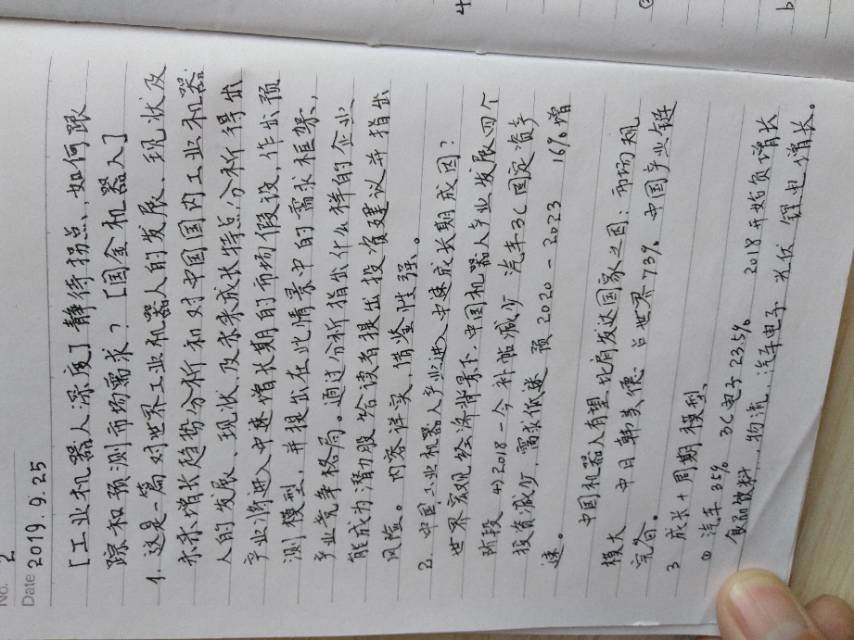 No. 2
Date 2019.9.25
[工业机器人深度]静待拐点,如何跟
踪和预测市场需求?[国金机器人]
1. 这是一篇对世界工业机器人的发展、现状及
未来增长趋势分析和对中国国内工业机器
人的发展、现状、及未来成长特点分析得出
产业将进入中速增长期的市场假设,作出预
测模型,并提出在此情景中的需求框架,
产业竞争格局。通过分析指出什么样的企业
能成为潜力股给读者提出投资建议并指出
风险。内容详实,借鉴性强。
2. 中国工业机器人产业进入中速成长期成因?
世界宏观经济背景下,中国机器人产业发展四个
阶段 4)2018-今 补贴减少 汽车3C固定资产
投资减少,需求低迷 预2020-2023 16%增
速。
中国机器人有望 比肩发达国家之因:市场规
模大 中日韩美德 占世界73% 中国产业链
完备。
3 成长+周期模型
① 汽车35% 3C电子23.5% 2018开始负增长
食品饮料、物流、汽车电子 光伏 锂电 增长。